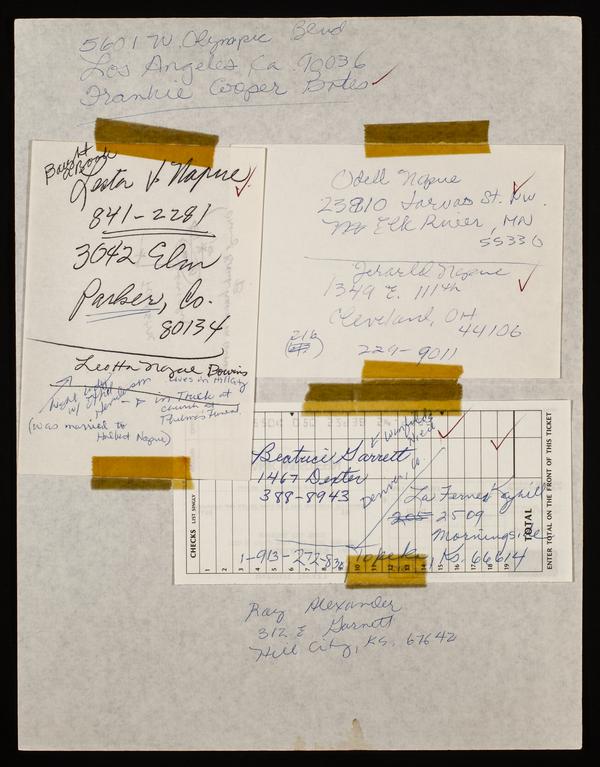 5601 W. Olympic Blvd
Los Angeles, Ca 90036
Frankie Cooper Bates
Bought
Book
Lester V Napue
841-2281
3042 Elm
Parker, Co.
80134
Leotta Napue Bowins
Lives in Hill City
light
w/ Ethel
in Truck at
church
Thelma's Funeral
(was married to
Hulbert Napue)
Odell Napue
23810 Jarvas St. N.W.
Elk River, MN
55330
Jerarld Napue
1349 E. 111th
Cleveland, OH
44106
(216)
229-9011
Beatrice Garrett
1467 Dexter
388-8943
Denver, Co.
Winfield's
Niece
La Ferne
205 2509
Morningside
Topeka, Ks. 66614
1-913-272-83
CHECKS LIST SINGLY
1
2
3
4
5
6
7
8
9
10
11
12
13
14
15
16
17
18
19
TOTAL
ENTER TOTAL ON THE FRONT OF THIS TICKET
Ray Alexander
312 E Garnett
Hill City, KS. 67642